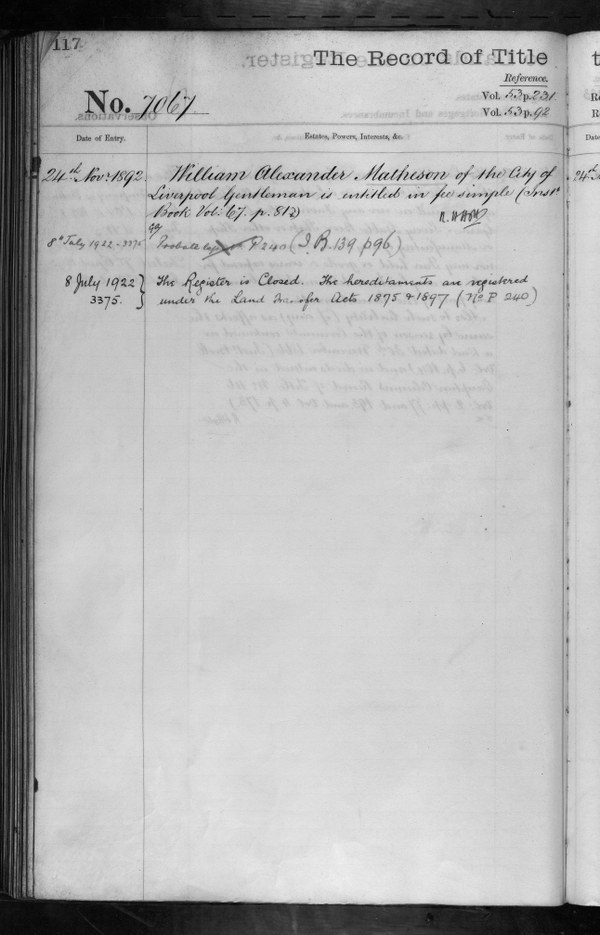 117
The Record of Title
Reference.
No. 7067
Vol. 53 p. 231
Vol. 53 p. 92
Date of Entry.
Estates, Powers, Interests, &c.
24th Novr. 1892
William Alexander Matheson of the City of
Liverpool Gentleman is entitled in fee simple (Inst.
Book Vol: 67. p. 812)
8th July 1922 - 3375
Probate P 240 (I.B. 139 p96)
8 July 1922 }
The Register is Closed. The hereditaments are registered
3375. }
under the Land Transfer Acts 1875 & 1897 (No P 240)
t
24th